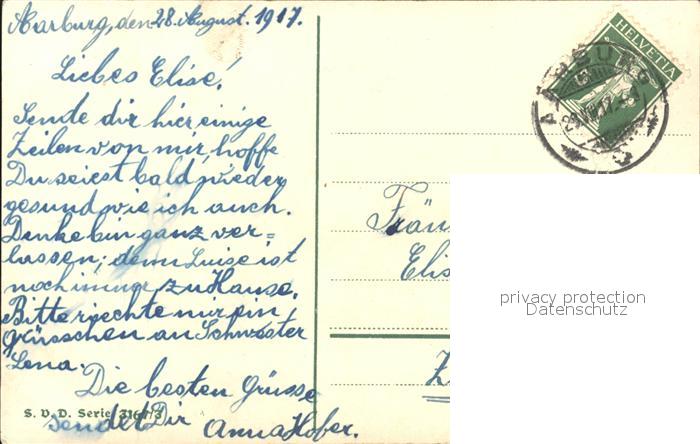 Aarburg, den 28. August. 1917.
Liebes Elise!
Sende dir hier einige
Zeilen von mir, hoffe
Du seiest bald wieder
gesund wie ich auch.
Denke bin ganz ver=
lassen; denn Luise ist
noch immer zu Hause.
Bitte rechte mir ein
Grüsschen an Schwester
Lena.
Die besten Grüsse
sendet Dir Anna Hofer.
S. V. D. Serie 3164/3
HELVETIA
AARBURG
Fräu
Elis
privacy protection
Datenschutz